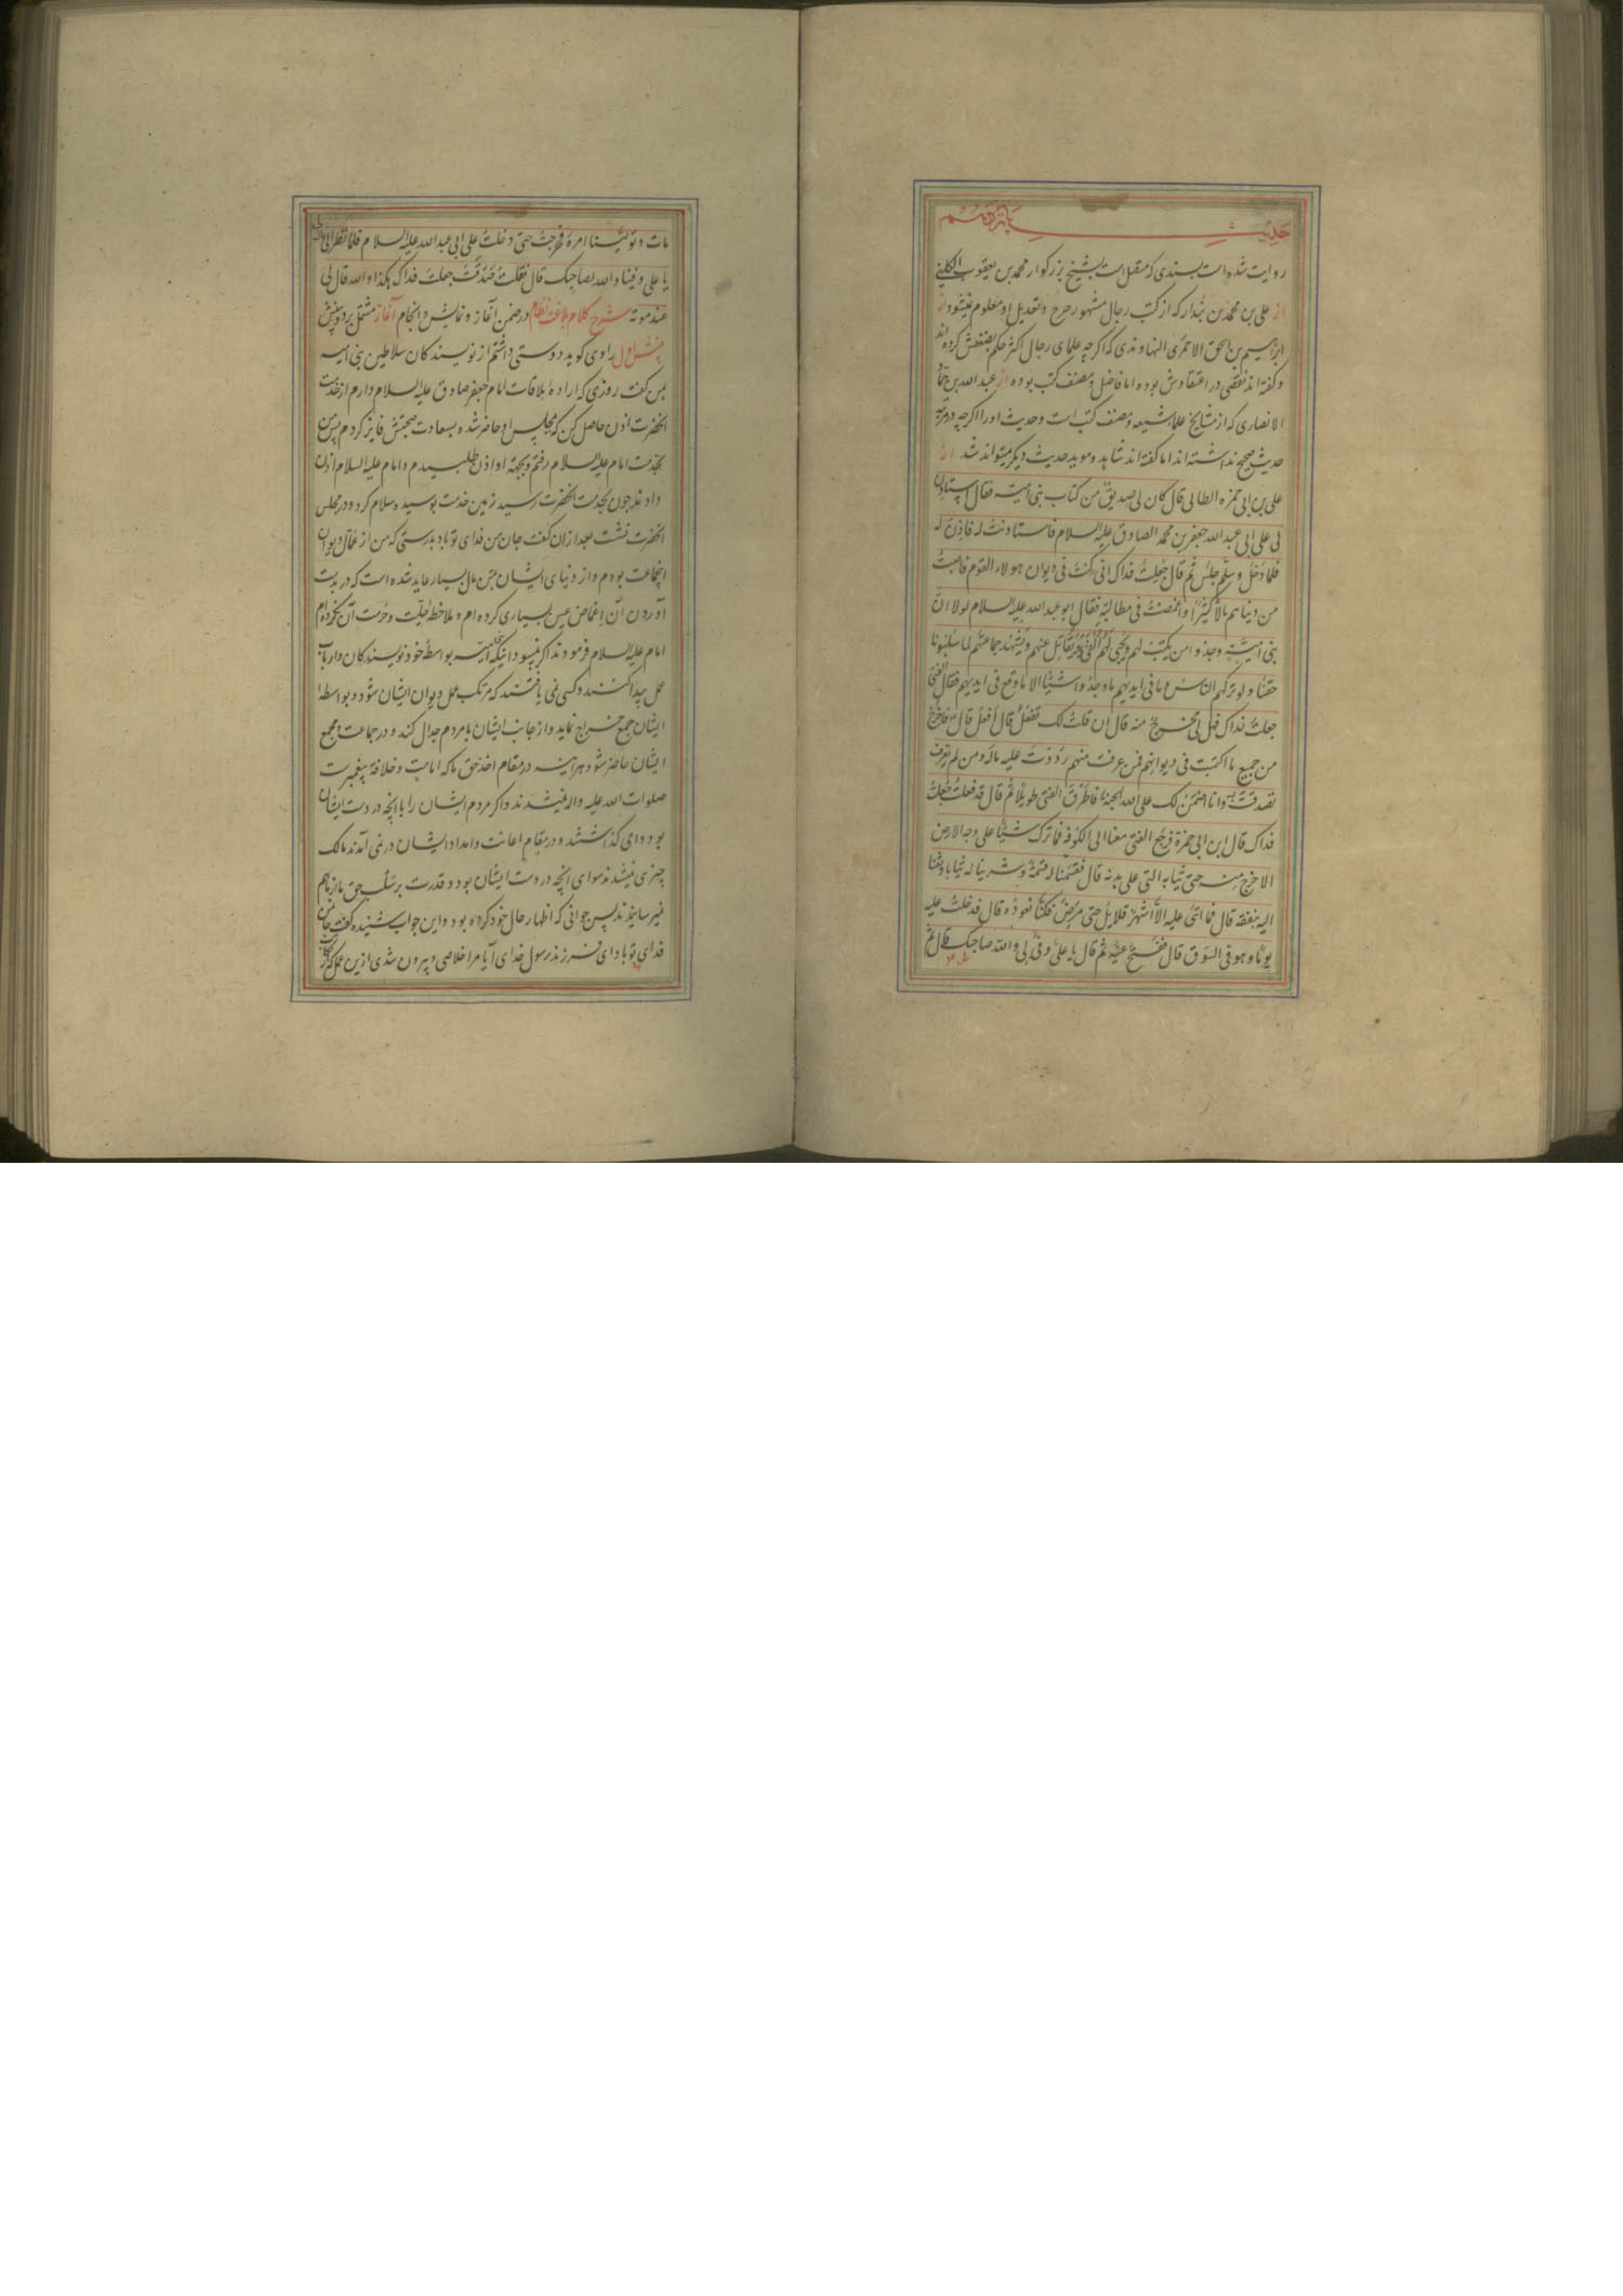 حدیث پانزدهم
روایت شده است بسندی که متصل است بشیخ بزرکوار محمد بن یعقوب الکلینی
از علی بن محمد بن بندار که از کتب رجال مشهور جرح و تعدیل او معلوم نمیشود از
ابراهیم بن اسحق الاحمری النهاوندی که اکرچه علمای رجال اکثر حکم بضعفش کرده اند
و کفته اند نقصی در اعتقادش بوده اما فاضل و مصنف کتب بوده از عبد الله بن حماد
الانصاری که از مشایخ علماء شیعه و مصنف کتب است و حدیث او را اکرچه در مرتبه
حدیث صحیح نداشته اند اما کفته اند شاهد و موید حدیث دیکر میتواند شد از
علی بن ابی حمزه الطائی قال کان لی صدیق من کتاب بنی امیه فقال استاذن
لی علی ابی عبد الله جعفر بن محمد الصادق علیه السلام فاستاذنت له فاذن له
فلما دخل و سلم جلس ثم قال جعلت فداک انی کنت فی دیوان هولاء القوم فاصبت
من دنیاهم مالا کثیرا و اغمضت فی مطالبه فقال ابو عبد الله علیه السلام لولا ان
بنی امیة وجدوا من یکتب لهم و یجبی لهم الفئ و یقاتل عنهم و یشهد جماعتهم لما سلبونا
حقنا ولو ترکهم الناس و ما فی ایدیهم ما وجدوا شیئا الا ما وقع فی ایدیهم فقال الفتی
جعلت فداک فهل لی مخرج منه قال ان قلت لک تفعل قال افعل قال فاخرج
من جمیع ما اکتسبت فی دیوانهم فمن عرفت منهم رددت علیه ماله و من لم تعرف
تصدقت به و انا اضمن لک علی الله الجنة فاطرق الفتی طویلا ثم قال قد فعلت جعلت
فداک قال ابن ابی حمزة فرجع الفتی معنا الی الکوفه فما ترک شیئا علی وجه الارض
الا خرج منه حتی ثیابه التی علی بدنه قال فقسمنا له قسمة و شرینا له ثیابا و بعثنا
الیه بنفقة قال فما اتی علیه الا اشهر قلایل حتی مرض فکنا نعوده قال فدخلت علیه
یوما و هو فی السوق قال ففتح عینیه ثم قال یا علی وفی لی والله صاحبک قال ثم
مات و تولینا امره فخرجت حتی دخلت علی ابی عبد الله علیه السلام فلما نظر الی قال
یا علی وفینا والله لصاحبک قال فقلت صدقت جعلت فداک هکذا والله قال لی
عند موته شرح کلام بلاغت نظام در ضمن آغاز و نمایش و انجام آغاز مشتمل بر دو بینش
بینش اول راوی کوید دوستی داشتم از نویسندکان سلاطین بنی امیه
بمن کفت روزی که اراده ملاقات امام جعفر صادق علیه السلام دارم از خدمت
آنحضرت اذن حاصل کن که بمجلس او حاضر شده بسعادت صحبتش فایز کردم پس من
بخدمت امام علیه السلام رفتم و بجهة او اذن طلبیدم و امام علیه السلام اذن
دادند چون بخدمت آنحضرت رسید زمین خدمت بوسیده سلام کرد و در مجلس
آنحضرت نشست بعد ازان کفت جان من فدای تو باد بدرستی که من از عمال دیوان
آنجماعت بودم و از دنیای ایشان بمن مال بسیار عاید شده است که در بدست
آوردن آن اغماض عین بسیاری کرده ام و ملاحظه حلیت و حرمت آن نکرده ام
امام علیه السلام فرمودند اکر نمیبود اینکه بنی امیه بواسطه خود نویسندکان و ارباب
عمل پیدا کنند و کسی نمی یافتند که مرتکب عمل دیوان ایشان شود و بواسطه
ایشان جمع خراج نماید و از جانب ایشان با مردم جدال کند و در جماعت و مجمع
ایشان حاضر شود هرآینه در مقام اخذ حق ما که امامت و خلافة پیغمبرست
صلوات الله علیه و اله نمیشدند و اکر مردم ایشان را با آنچه در دست ایشان
بود وامی کذاشتند و در مقام اعانت و امداد ایشان در نمی آمدند مالک
چیزی نمیشدند سوای آنچه در دست ایشان بود و قدرت بر سلب حق ما از ما بهم
نمیرسانیدند پس جوانی که اظهار حال خود کرده بود و این جواب شنیده کفت جان من
فدای تو باد ای فرزند رسول خدای آیا مرا خلاصی و بیرون شدی ازین عمل که